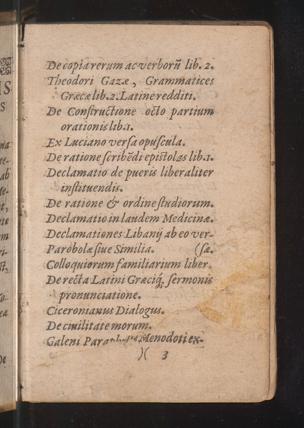 De copia rerum ac verborũ lib. 2.
Theodori Gazæ, Grammatices
Græcæ lib. 2. Latine redditi.
De Constructione octo partium
orationis lib.1.
Ex Luciano versa opuscula.
De ratione scribẽdi epistolas lib.1.
Declamatio de pueris liberaliter
instituendis.
De ratione & ordine studiorum.
Declamatio in laudem Medicinæ.
Declamationes Libanij ab eo ver-
Parobolæ siue Similia. (sæ.
Colloquiorum familiarium liber.
De recta Latini Græciq; sermonis
pronunciatione.
Ciceronianus Dialogus.
De ciuilitate morum.
Galeni Menodoti ex-
)( 3